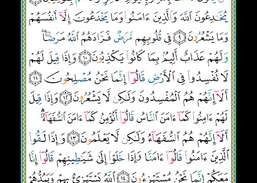 يُخَٰدِعُونَ ٱللَّهَ وَٱلَّذِينَ ءَامَنُوا۟ وَمَا يَخْدَعُونَ إِلَّآ أَنفُسَهُمْ
وَمَا يَشْعُرُونَ ٩ فِى قُلُوبِهِم مَّرَضٌ فَزَادَهُمُ ٱللَّهُ مَرَضًا
وَلَهُمْ عَذَابٌ أَلِيمٌۢ بِمَا كَانُوا۟ يَكْذِبُونَ ١٠ وَإِذَا قِيلَ لَهُمْ
لَا تُفْسِدُوا۟ فِى ٱلْأَرْضِ قَالُوٓا۟ إِنَّمَا نَحْنُ مُصْلِحُونَ ١١
أَلَآ إِنَّهُمْ هُمُ ٱلْمُفْسِدُونَ وَلَٰكِن لَّا يَشْعُرُونَ ١٢ وَإِذَا قِيلَ
لَهُمْ ءَامِنُوا۟ كَمَآ ءَامَنَ ٱلنَّاسُ قَالُوٓا۟ أَنُؤْمِنُ كَمَآ ءَامَنَ ٱلسُّفَهَآءُ
أَلَآ إِنَّهُمْ هُمُ ٱلسُّفَهَآءُ وَلَٰكِن لَّا يَعْلَمُونَ ١٣ وَإِذَا لَقُوا۟
ٱلَّذِينَ ءَامَنُوا۟ قَالُوٓا۟ ءَامَنَّا وَإِذَا خَلَوْا۟ إِلَىٰ شَيَٰطِينِهِمْ قَالُوٓا۟ إِنَّا
مَعَكُمْ إِنَّمَا نَحْنُ مُسْتَهْزِءُونَ ١٤ ٱللَّهُ يَسْتَهْزِئُ بِهِمْ وَيَمُدُّهُمْ